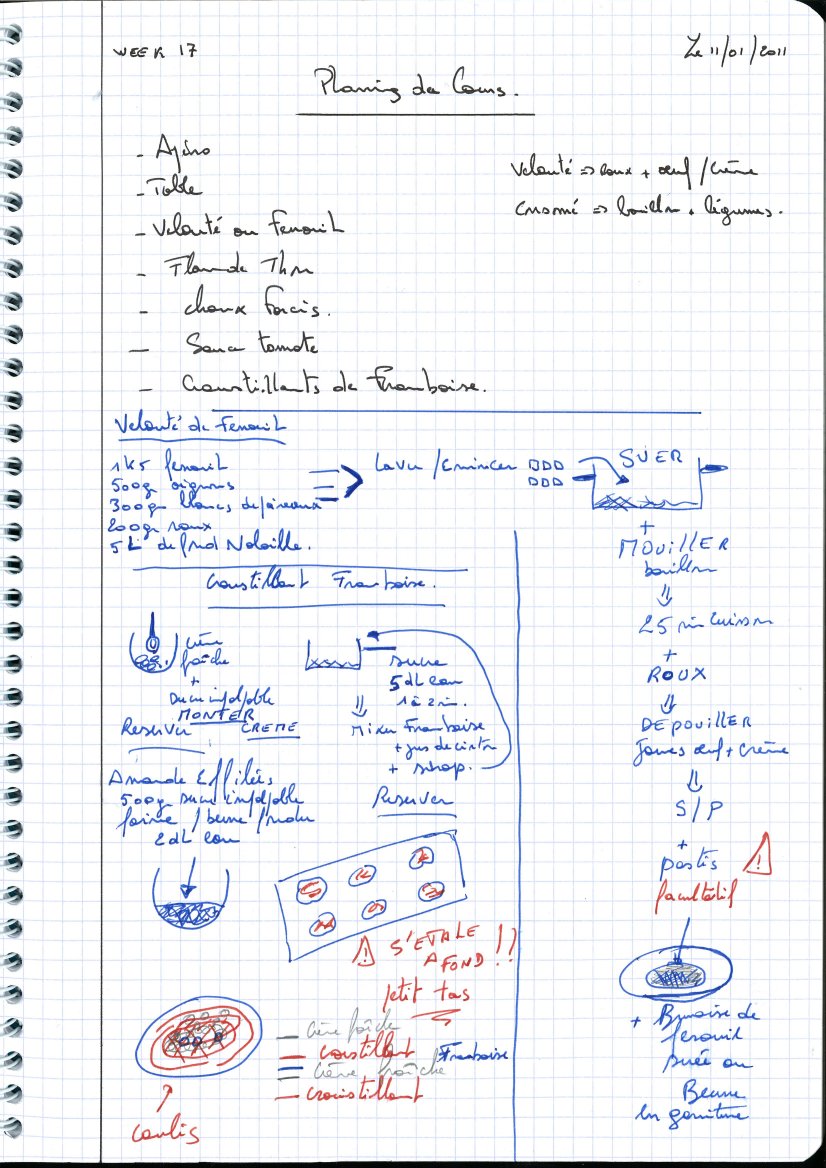 WEEK 17
Le 11/01/2011
Planing de Cours.
- Apéro
- Table
- Velouté ou Fenouil
- Flan de Thon
- choux Farcis.
- Sauce tomate
- Croustillants de Framboise.
Velouté => roux + œuf / Crème
Consomé => bouillon + légumes.
Velouté de Fenouil
1K5 fenouil
500gr oignons
300gr blancs de poireaux
200gr roux
5L de fond Volaille.
Laver / Emincer
SUER
+
MOUILLER
bouillon
25 min Cuisson
+
ROUX
DEPOUILLER
Jaunes œuf + Crème
S/P
+
pastis
facultatif
+ Brunoise de
fenouil
suée au
Beurre
en garniture
Croustillant Framboise.
Crème
fraîche
+
MONTER
Reserver CREME
sucre
5dL eau
1 à 2 min.
Mixer Framboise
+ jus de citron
+ sirop.
Reserver
Amande Effilées
500gr sucre
farine / beurre / fondu
2dL eau
S'ETALE
A FOND !!
petit tas
Crème fraîche
croustillant Framboise
Crème fraîche
croustillant
coulis